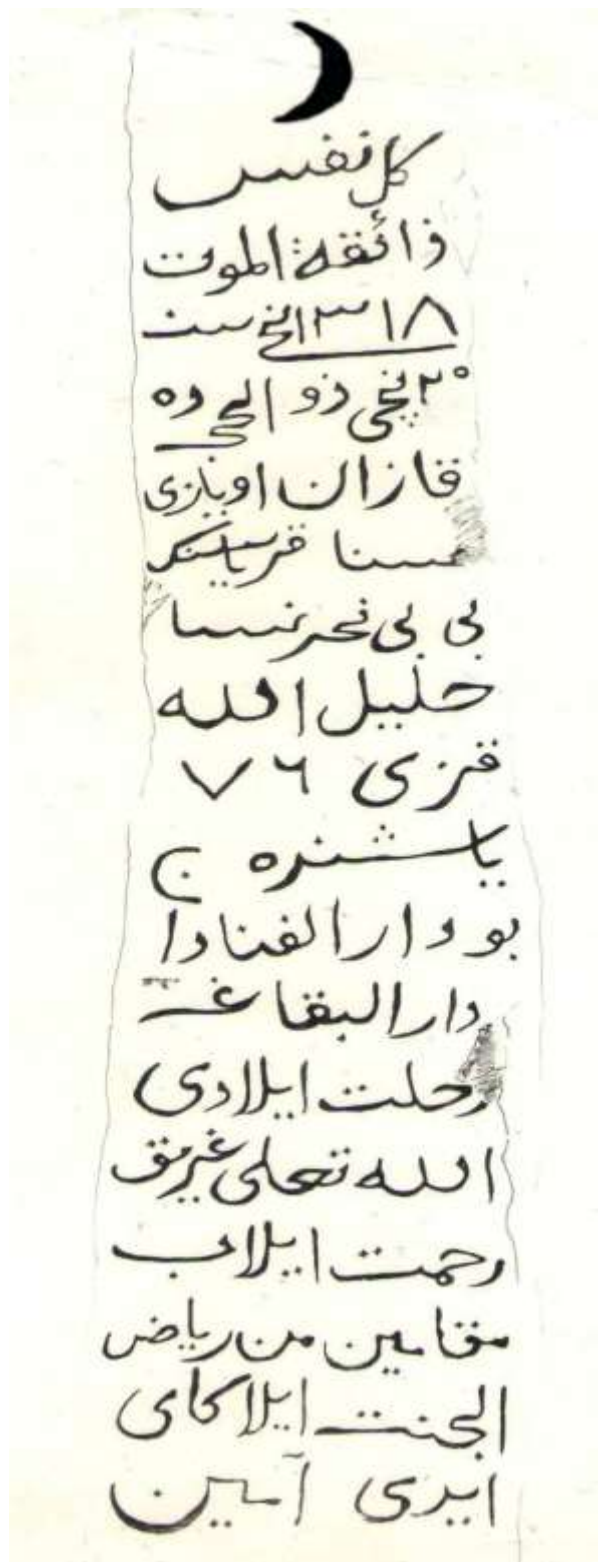 كل نفس
ذائقة الموت
٣١٨ ١نچی سنه
٢٥نچی ذو الحجه ده
قازان اويازى
سنا قرياسينك
بى بى
خليل الله
قزى ٧٦
ياشنده
بو دار الفنادا
دار البقاغه
رحلت ايلادى
الله تعلى غريق
رحمت ايلاب
مقامين من رياض
الجنت ايلاكاى
ايدى آمين